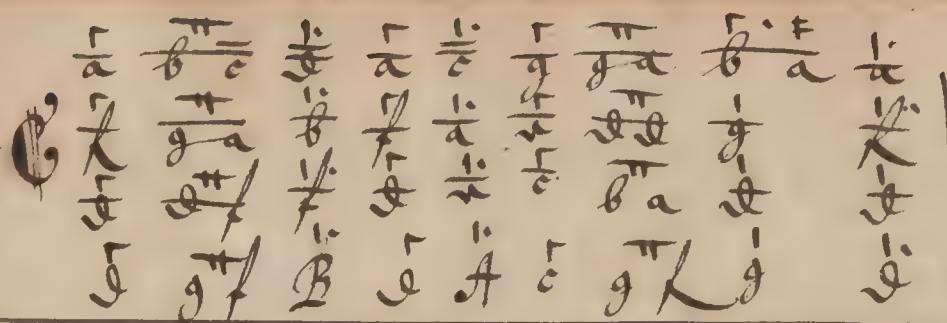 a b c d a c g g a b a a
f g a b f a e d d g f
d d f f d e c b a d d
d g f B d A c g f g d